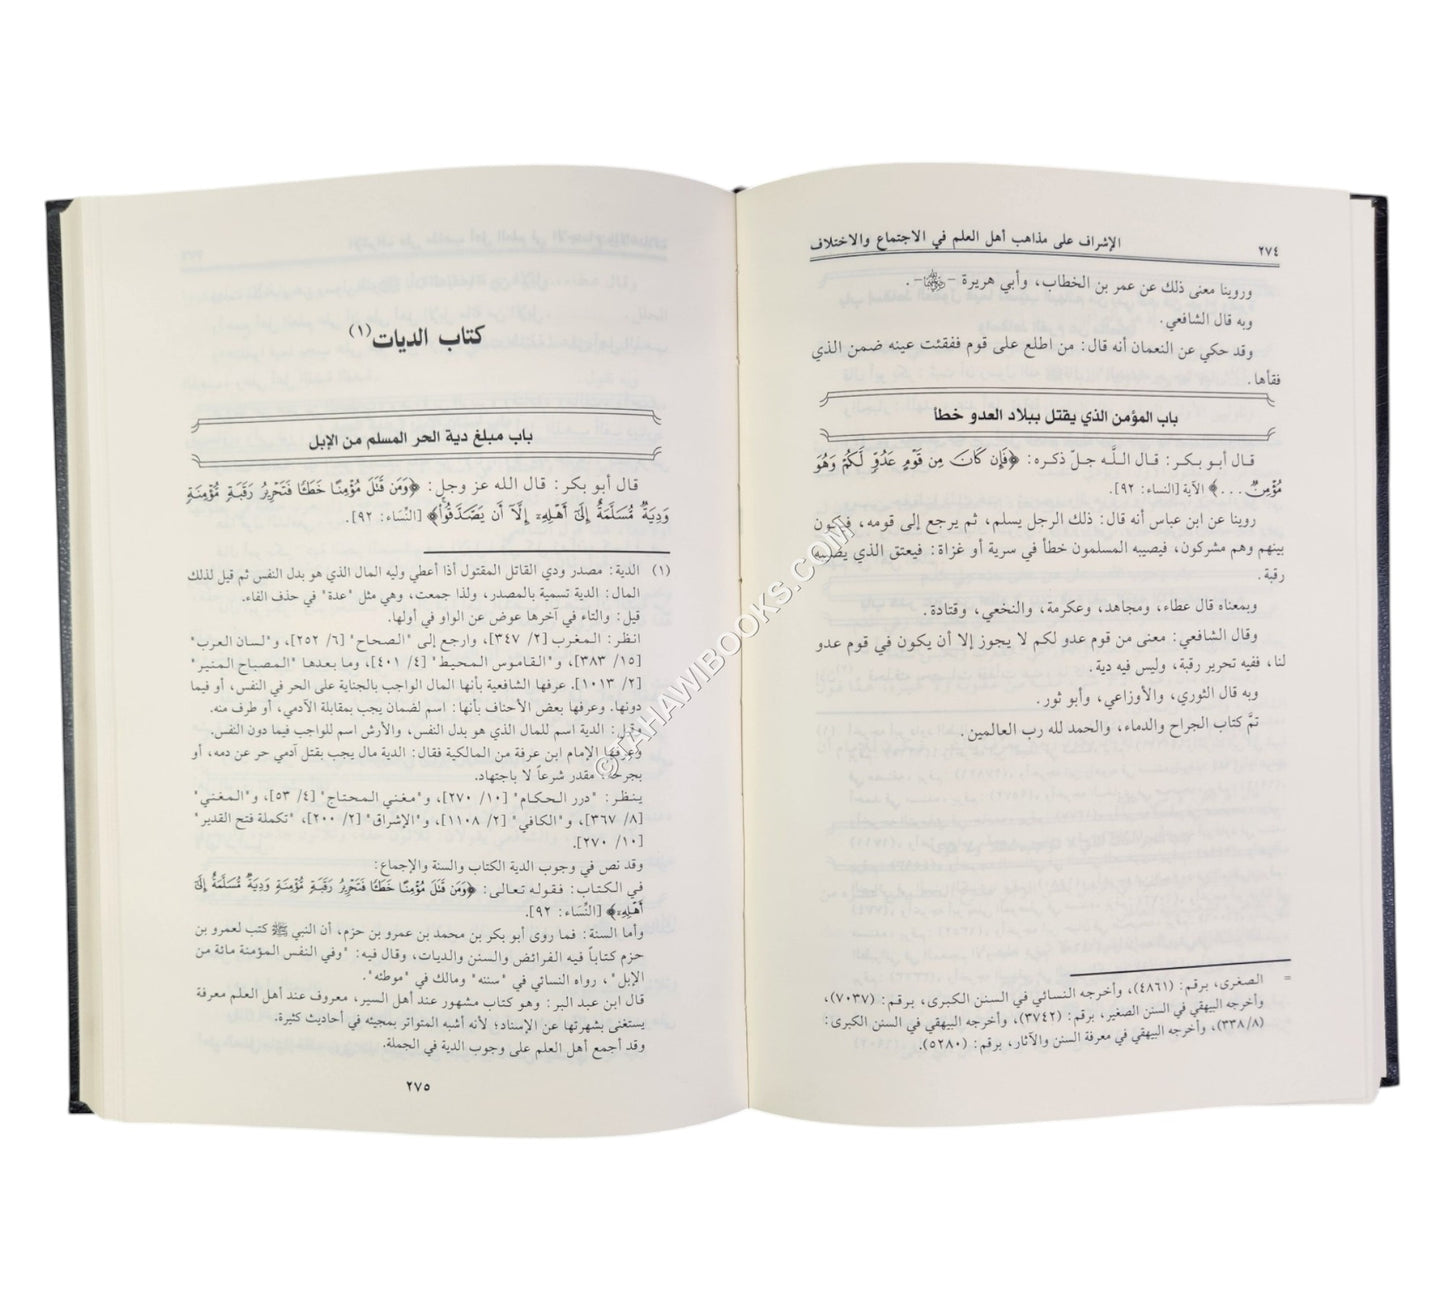 ٢٧٤
الإشراف على مذاهب أهل العلم في الاجتماع والاختلاف
وروينا معنى ذلك عن عمر بن الخطاب، وأبي هريرة - رضي الله عنهما -.
وبه قال الشافعي.
وقد حكي عن النعمان أنه قال: من اطلع على قوم ففقئت عينه ضمن الذي
فقأها.
باب المؤمن الذي يقتل ببلاد العدو خطأ
قال أبو بكر: قال اللَّه جلّ ذكره: ﴿فَإِن كَانَ مِن قَوْمٍ عَدُوٍّ لَّكُمْ وَهُوَ
مُؤْمِنٌ ...﴾ الآية [النساء: ٩٢].
روينا عن ابن عباس أنه قال: ذلك الرجل يسلم، ثم يرجع إلى قومه، فيكون
بينهم وهم مشركون، فيصيبه المسلمون خطأ في سرية أو غزاة: فيعتق الذي يصيبه
رقبة.
وبمعناه قال عطاء، ومجاهد، وعكرمة، والنخعي، وقتادة.
وقال الشافعي: معنى من قوم عدو لكم لا يجوز إلا أن يكون في قوم عدو
لنا، ففيه تحرير رقبة، وليس فيه دية.
وبه قال الثوري، والأوزاعي، وأبو ثور.
تمَّ كتاب الجراح والدماء، والحمد لله رب العالمين.
= الصغرى، برقم: (٤٨٦١)، وأخرجه النسائي في السنن الكبرى، برقم: (٧٠٣٧)،
وأخرجه البيهقي في السنن الصغير، برقم: (٣٧٤٢)، وأخرجه البيهقي في السنن الكبرى:
(٣٣٨/٨)، وأخرجه البيهقي في معرفة السنن والآثار، برقم: (٥٢٨٠).
كتاب الديات(١)
باب مبلغ دية الحر المسلم من الإبل
قال أبو بكر: قال الله عز وجل: ﴿وَمَن قَتَلَ مُؤْمِنًا خَطَئًا فَتَحْرِيرُ رَقَبَةٍ مُّؤْمِنَةٍ
وَدِيَةٌ مُّسَلَّمَةٌ إِلَىٰٓ أَهْلِهِۦٓ إِلَّآ أَن يَصَّدَّقُوا۟﴾ [النِّسَاء: ٩٢].
(١) الدية: مصدر ودي القاتل المقتول أذا أعطي وليه المال الذي هو بدل النفس ثم قيل لذلك
المال: الدية تسمية بالمصدر، ولذا جمعت، وهي مثل "عدة" في حذف الفاء.
قيل: والتاء في آخرها عوض عن الواو في أولها.
انظر: المغرب [٢/ ٣٤٧]، وارجع إلى "الصحاح" [٦/ ٢٥٢]، و"لسان العرب"
[١٥/ ٣٨٣]، و"القاموس المحيط" [٤/ ٤٠١]، وما بعدها "المصباح المنير"
[٢/ ١٠١٣]. عرفها الشافعية بأنها المال الواجب بالجناية على الحر في النفس، أو فيما
دونها. وعرفها بعض الأحناف بأنها: اسم لضمان يجب بمقابلة الآدمي، أو طرف منه.
وقيل: الدية اسم للمال الذي هو بدل النفس، والأرش اسم للواجب فيما دون النفس.
وعرفها الإمام ابن عرفة من المالكية فقال: الدية مال يجب بقتل آدمي حر عن دمه، أو
بجرحه، مقدر شرعاً لا باجتهاد.
ينظر: "درر الحكام" [١٠/ ٢٧٠]، و"مغني المحتاج" [٤/ ٥٣]، و"المغني"
[٨/ ٣٦٧]، و"الكافي" [٢/ ١١٠٨]، و"الإشراق" [٢/ ٢٠٠]، "تكملة فتح القدير"
[١٠/ ٢٧٠].
وقد نص في وجوب الدية الكتاب والسنة والإجماع:
في الكتاب: فقوله تعالى: ﴿وَمَن قَتَلَ مُؤْمِنًا خَطَئًا فَتَحْرِيرُ رَقَبَةٍ مُّؤْمِنَةٍ وَدِيَةٌ مُّسَلَّمَةٌ إِلَىٰٓ
أَهْلِهِۦٓ﴾ [النِّسَاء: ٩٢].
وأما السنة: فما روى أبو بكر بن محمد بن عمرو بن حزم، أن النبي ﷺ كتب لعمرو بن
حزم كتاباً فيه الفرائض والسنن والديات، وقال فيه: "وفي النفس المؤمنة مائة من
الإبل"، رواه النسائي في "سننه" ومالك في "موطئه".
قال ابن عبد البر: وهو كتاب مشهور عند أهل السير، معروف عند أهل العلم معرفة
يستغنى بشهرتها عن الإسناد؛ لأنه أشبه المتواتر بمجيئه في أحاديث كثيرة.
وقد أجمع أهل العلم على وجوب الدية في الجملة.
٢٧٥
© TAHAWIBOOKS.COM